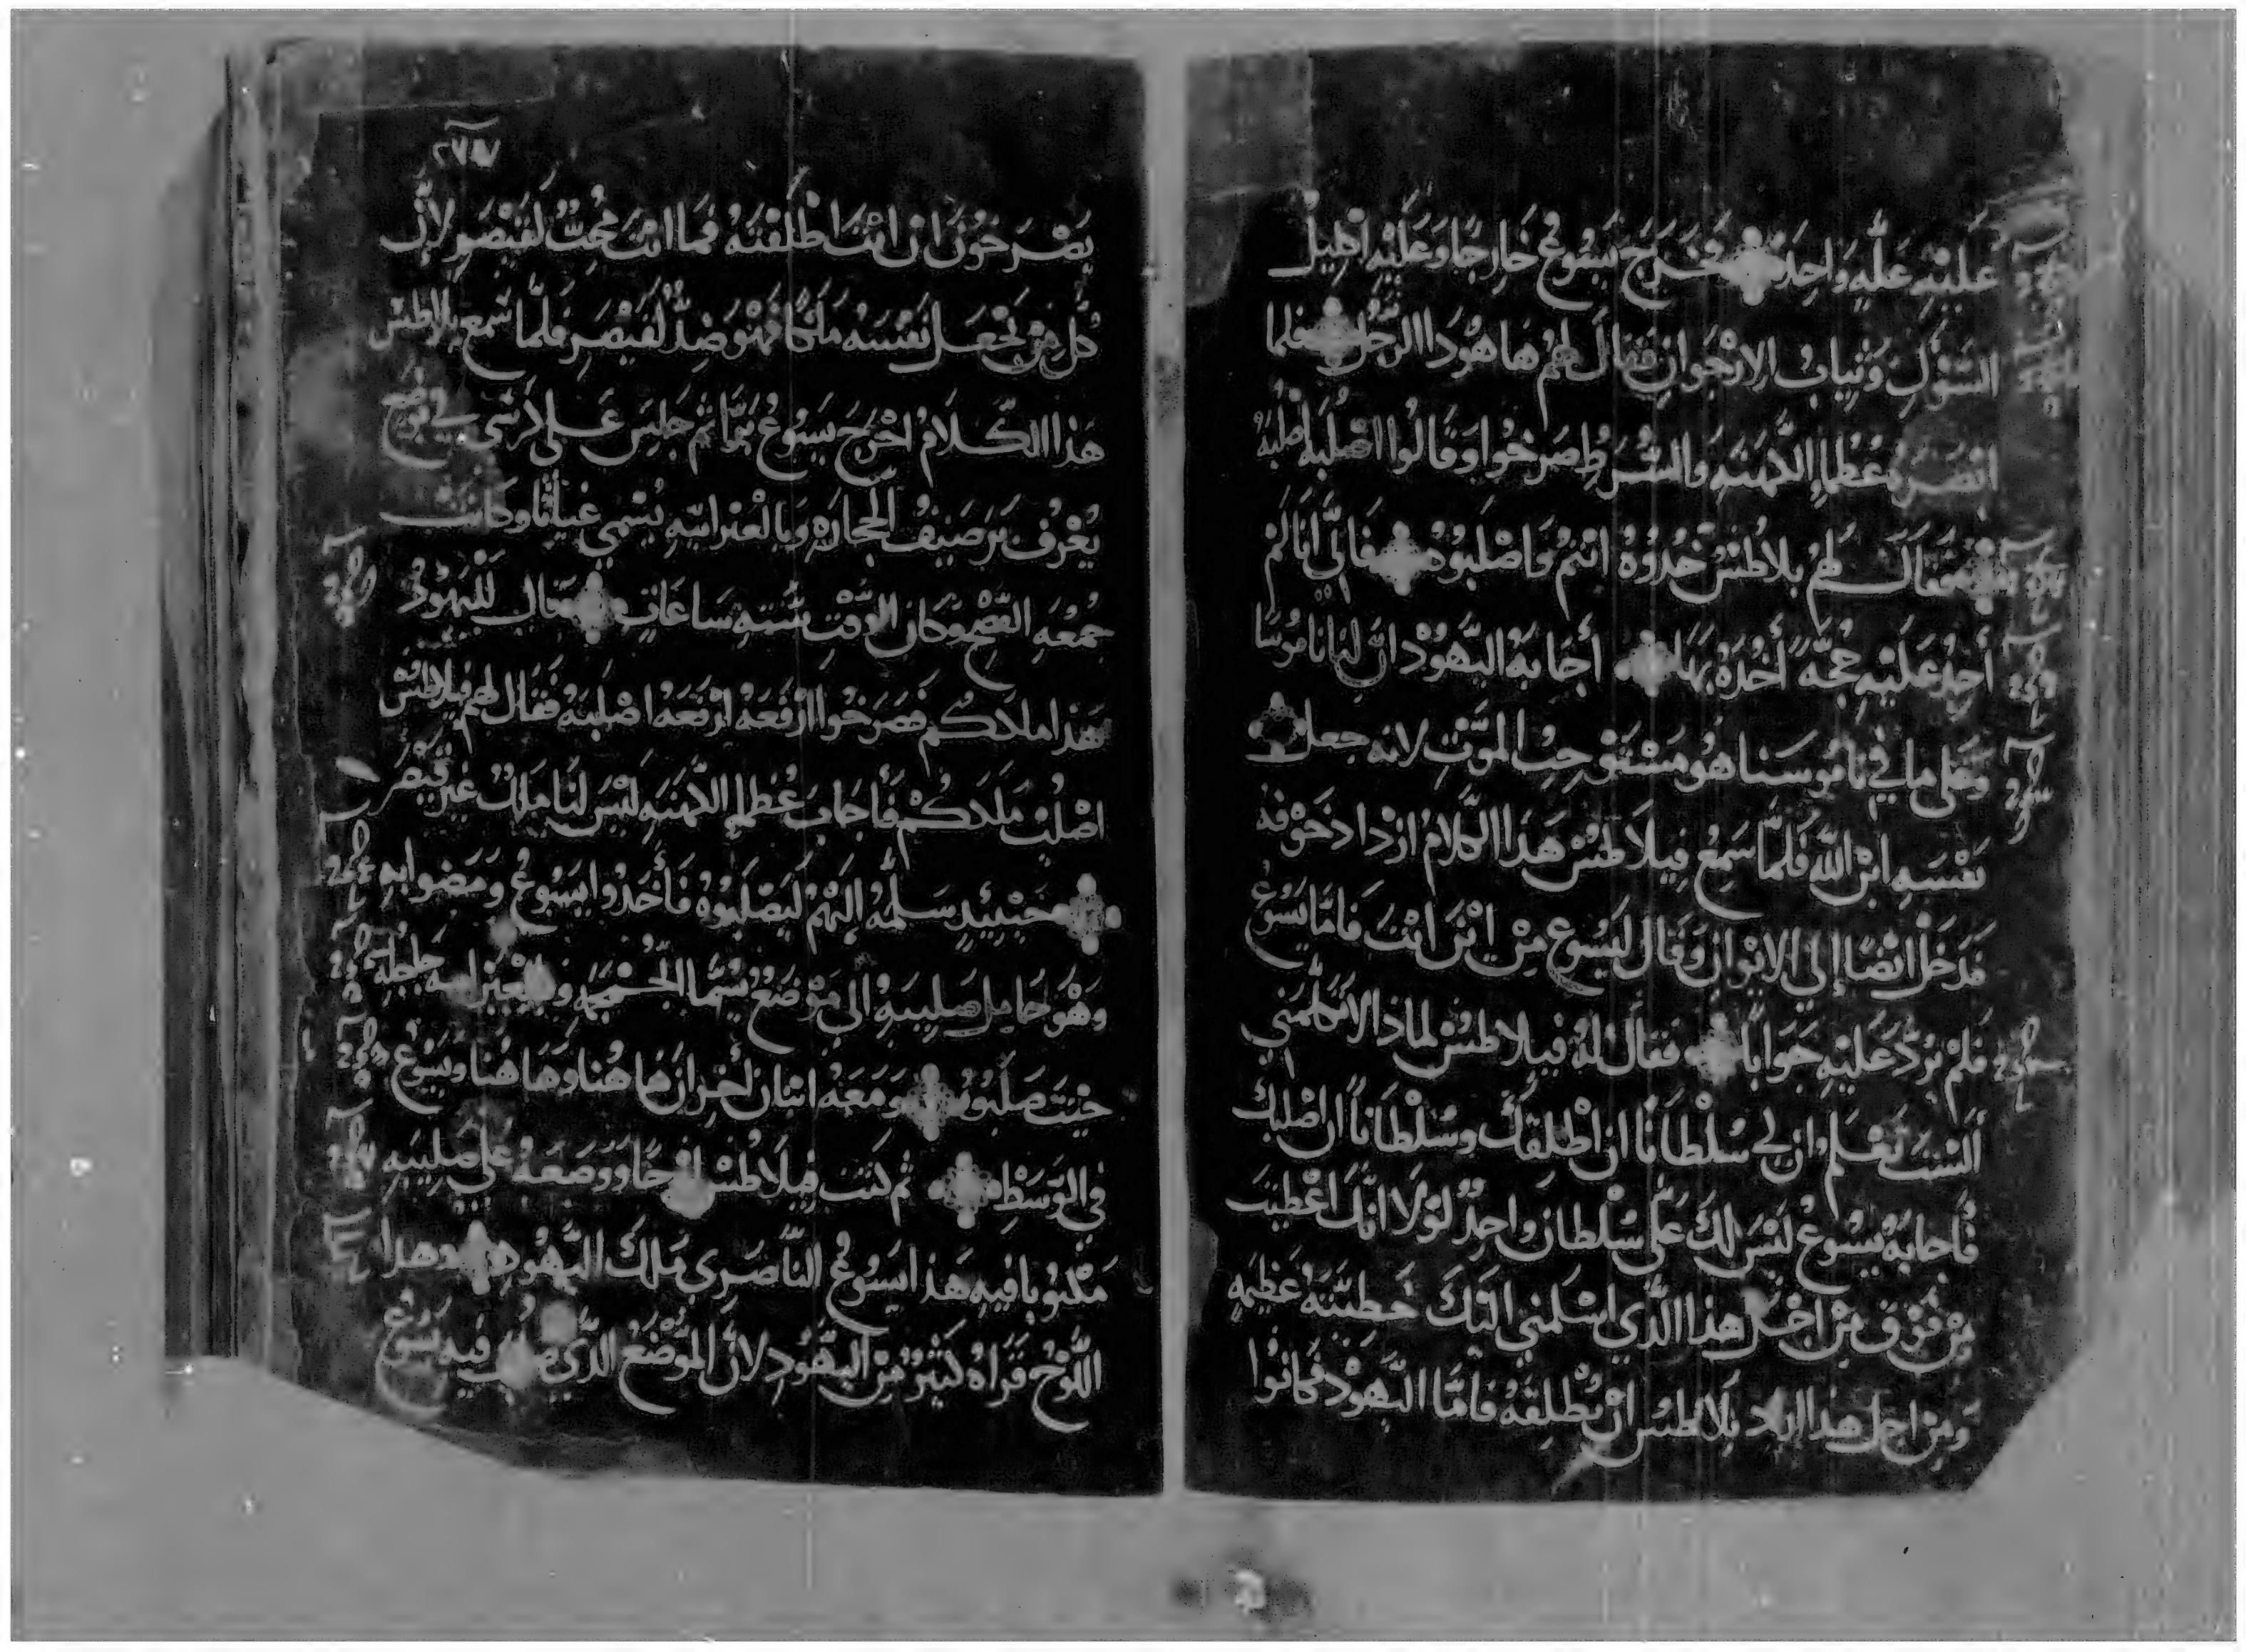 عَليْهِ عَلَّهٍ وَاحِدَه فَخَرَج يَسُوعُ خَارِجًا وَعَلَيْهِ اكلِيْل
الشوَكِ وَثِيابُ الارْجوَانِ فقالَ لهُم ها هوَدا الرّجُل فلما
ابْصَرهُ عُظما الكَهَنَهِ وَالشُرطِ صَرخوا وَقالُوا اصْلبهُ اصْلبهُ
فقالَ لهُم بلاطُسْ خُدُوهُ انتمُ وَاصْلبُوهُ فَانّي انا لمْ
أجدُ عَليْهِ حُجّه أخُدهُ بهَا أجَابهُ اليَهوُدْ انّ لنَا نامُوسًا
وَعَلى ما في نامُوسَنا هُو مسْتَوْجِبُ الموْتِ لانه جعل
نفْسَهِ ابْن الله فَلمَّا سَمِعَ فِيلاَطسْ هَذا الكلامُ ازْدادَ خَوْفه
فدَخَلْ ايْضًا إلى الايْوَانِ وَقَالَ ليَسُوع مِنْ ايْنَ انْتَ فَامّا يَسُوعْ
فلمْ يَرُدّ عَليْهِ جَوَابًا فقالَ لهُ فيلاطسْ لماذا لا تكَلمني
ألسْتَ تعْلم ان لي سُلْطانًا انْ اطْلقكَ وَسُلْطانًا ان اصْلبك
فأجابهُ يسُوعُ ليْسَ لكَ عَليّ سُلْطان وَاحِدٌ لوْلا انّكَ اعْطيْتَ
مِنْ فَوْق مِنْ اجْل هذا الّذي اسْلمني اليْكَ خَطيئتهُ عَظيمَهٍ
وَمِنْ اجل هذا اراد بلاطسْ انْ يُطلِقهُ فامّا اليَهوْدْ فكانوُا
٢٧٧
يَصْرخوُنَ انْ انْتَ اطْلقْتهُ فمَا انْتَ مُحِبٌّ لقَيْصَر لانّ
كُل مَنْ يَجْعَل نَفْسَهُ مَلكًا فهْوَ ضِدٌّ لقيْصَر فلمّا سَمِع بلاطسْ
هَذا الكَلامُ اخْرَج يَسُوعُ بَرّا ثم جَلسَ عَلى كرْسي في موْضع
يُعْرُف برَصيْفُ الحِجارَهِ وَبالعِبْرانيّهِ يُسْمي غباتا وكانَتْ
جمُعَهِ الفِصْحِ وَكانَ الوَقْتِ سِتّهِ سَاعَاتٍ فقال لليَهُودْ
هَذا ملَككُم فصَرَخُوا ارْفعَهُ ارْفعَهُ اصْلبَهُ فقال لهُم فيلاطسْ
اصْلُب مَلَككُمْ فَأجَابَ عُظما الكَهنَهِ ليْسَ لنَا ملكٌ غير قيْصَر
حَيْنئِدٍ سَلّمهُ إليْهمْ ليَصْلبُوهُ فَأخَدُوا يَسُوعُ وَمَضوا بهِ
وَهْوَ حَامِل صَليبَهُ الى مَوْضعُ يُسَمّا الجُمْجمَهِ وَبالعِبْرانيه جلجله
حيْت صَلبُوهُ وَمَعَهُ اثنان أخرانْ هاهُنا وَهَاهُنا ويَسُوعْ
في الوَسَطِ ثم كَتبَ فيلاَطسْ لَوْحًا وَوَضعهُ عَلى صَليبَهِ
مَكتوُبا فيهِ هَذا يَسُوعُ النّاصَري مَلكَ اليَهُودِ وهذا
اللّوْحُ قَرَاهُ كثيْرٌ مِنَ اليَهُودِ لانّ الموْضعُ الذّي صُلبَ فيهِ يَسُوعْ